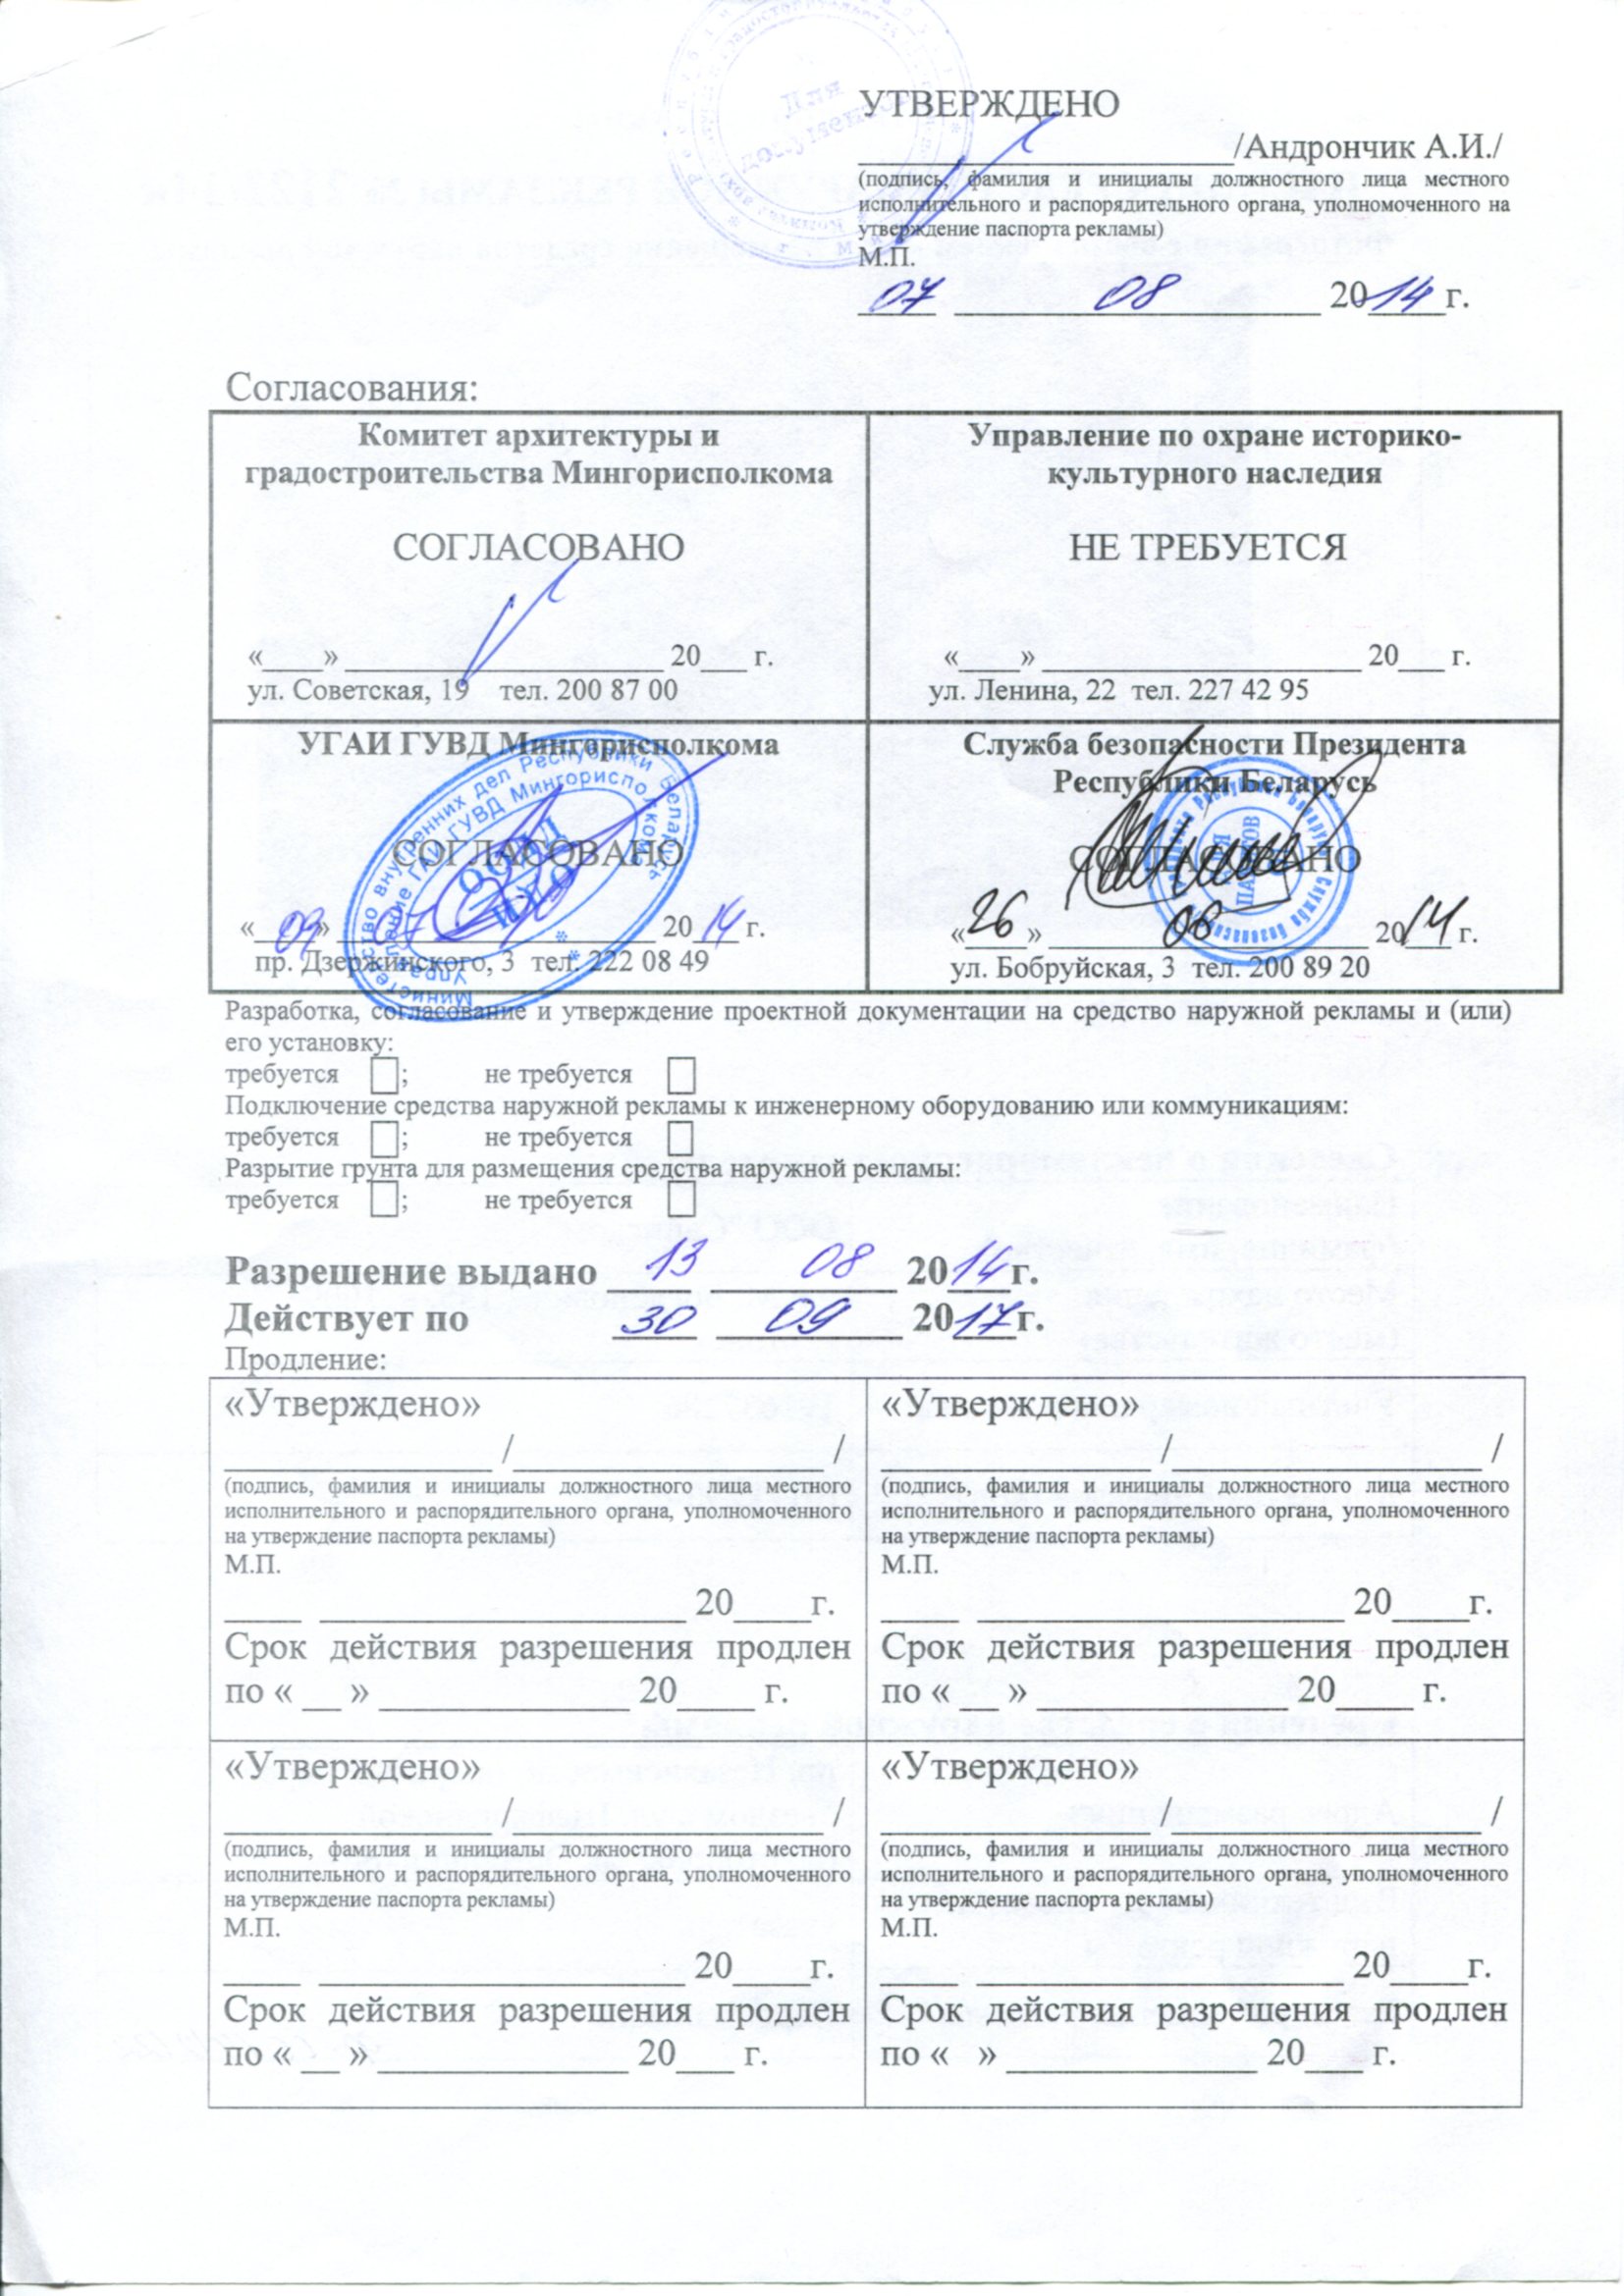 УТВЕРЖДЕНО
____________________/Андрончик А.И./
(подпись, фамилия и инициалы должностного лица местного
исполнительного и распорядительного органа, уполномоченного на
утверждение паспорта рекламы)
М.П.
07 08 2014г.
Для документов
Согласования:
Комитет архитектуры и
градостроительства Мингорисполкома
СОГЛАСОВАНО
«____» ____________________ 20___ г.
ул. Советская, 19 тел. 200 87 00
Управление по охране историко-
культурного наследия
НЕ ТРЕБУЕТСЯ
«____» ____________________ 20___ г.
ул. Ленина, 22 тел. 227 42 95
УГАИ ГУВД Мингорисполкома
СОГЛАСОВАНО
«09» 07 2014 г.
пр. Дзержинского, 3 тел. 222 08 49
Министерство внутренних дел Республики Беларусь
Управление ГАИ ГУВД Мингорисполкома
Служба безопасности Президента
Республики Беларусь
СОГЛАСОВАНО
«26» 08 2014 г.
ул. Бобруйская, 3 тел. 200 89 20
Разработка, согласование и утверждение проектной документации на средство наружной рекламы и (или)
его установку:
требуется ; не требуется
Подключение средства наружной рекламы к инженерному оборудованию или коммуникациям:
требуется ; не требуется
Разрытие грунта для размещения средства наружной рекламы:
требуется ; не требуется
Разрешение выдано 13 08 2014г.
Действует по 30 09 2017г.
Продление:
«Утверждено»
______________ /________________ /
(подпись, фамилия и инициалы должностного лица местного
исполнительного и распорядительного органа, уполномоченного
на утверждение паспорта рекламы)
М.П.
____ ___________________ 20____г.
Срок действия разрешения продлен
по « __ » _____________ 20____ г.
«Утверждено»
______________ /________________ /
(подпись, фамилия и инициалы должностного лица местного
исполнительного и распорядительного органа, уполномоченного
на утверждение паспорта рекламы)
М.П.
____ ___________________ 20____г.
Срок действия разрешения продлен
по « __ » _____________ 20____ г.
«Утверждено»
______________ /________________ /
(подпись, фамилия и инициалы должностного лица местного
исполнительного и распорядительного органа, уполномоченного
на утверждение паспорта рекламы)
М.П.
____ ___________________ 20____г.
Срок действия разрешения продлен
по « __ » _____________ 20___ г.
«Утверждено»
______________ /________________ /
(подпись, фамилия и инициалы должностного лица местного
исполнительного и распорядительного органа, уполномоченного
на утверждение паспорта рекламы)
М.П.
____ ___________________ 20____г.
Срок действия разрешения продлен
по « » _____________ 20___ г.